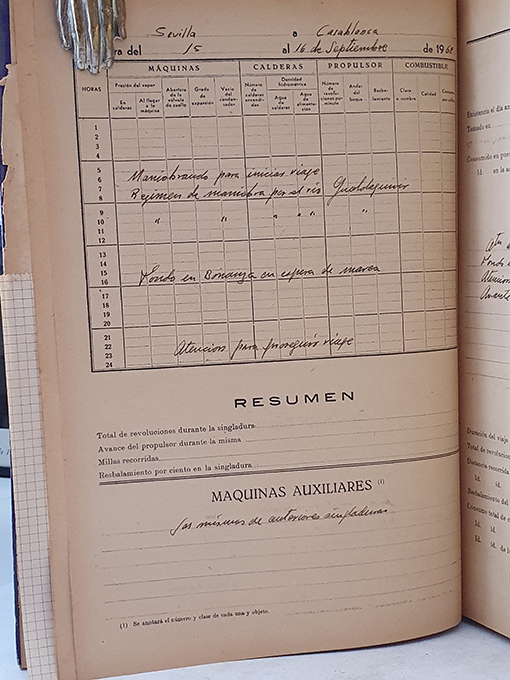 Sevilla a Casablanca
ra del 15 al 16 de Septiembre de 1960
HORAS
MÁQUINAS CALDERAS PROPULSOR COMBUSTIBLE
Presión del vapor
En calderas
Al llegar a la máquina
Abertura de la válvula de cuello
Grado de expansión
Vacío del condensador
Número de calderas encendidas
Densidad hidrométrica
Agua de calderas
Agua de alimentación
Número de revoluciones por minuto
Andar del buque
Resbalamiento
Clase o nombre
Calidad
1
2
3
4
5
6 Maniobrando para iniciar viaje
7 Régimen de maniobra por el río Guadalquivir
8
9
10 " " " " " "
11
12
13
14
15 Fondo en Bonanza en espera de marea
16
17
18
19
20
21
22 Atención para proseguir viaje
23
24
RESUMEN
Total de revoluciones durante la singladura
Avance del propulsor durante la misma
Millas recorridas
Resbalamiento por ciento en la singladura
MAQUINAS AUXILIARES (1)
Las mismas de anteriores singladuras
(1) Se anotará el número y clase de cada una y objeto.
Existencia el día an
Tomado en
Consumido en puer
Id. en la
Fondo
Atencion
Avante
Duración del viaje
Total de revolucione
Distancia recorrida
Id. Id.
Resbalamiento del
Consumo total de c
Id. Id.
Id. id. de